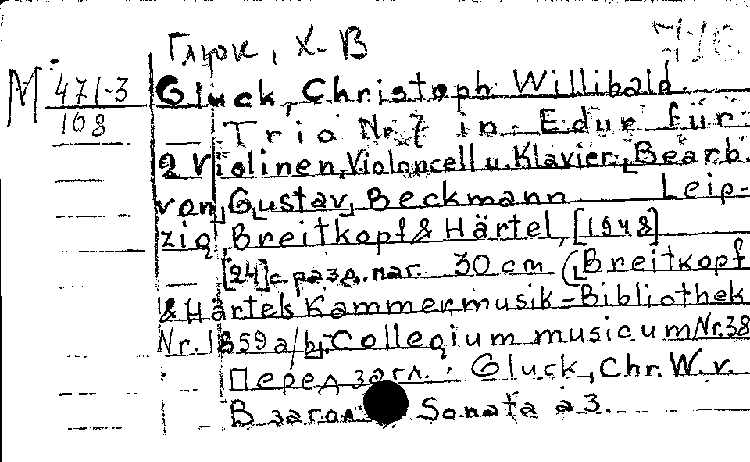 Глюк, Х-В
М 471-3
168
Gluck, Christoph Willibald.
Trio Nr. 7 in Edur für
2 Violinen, Violoncell u. Klavier, [Bearb.
von] Gustav Beckmann Leip-
zig, Breitkopf & Härtel, [1948]
[24] с разд. паг. 30 cm (Breitkopf
& Härtels Kammermusik-Bibliothek
Nr. 1859 a/b, Collegium musicum Nr. 38
Перед загл.: Gluck, Chr. W. v.
В загол Sonata a 3.